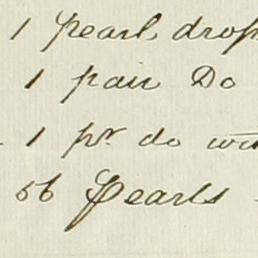 1 pearl drop
1 pair Do
1 pr. do
56 Pearls